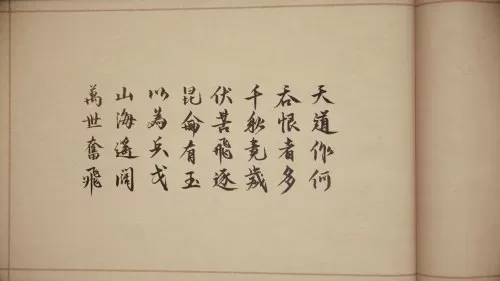 天道作何
吞恨者多
千秋竟歲
伏飛逐
昆侖有玉
以為兵戈
山海遙闊
萬世奮飛